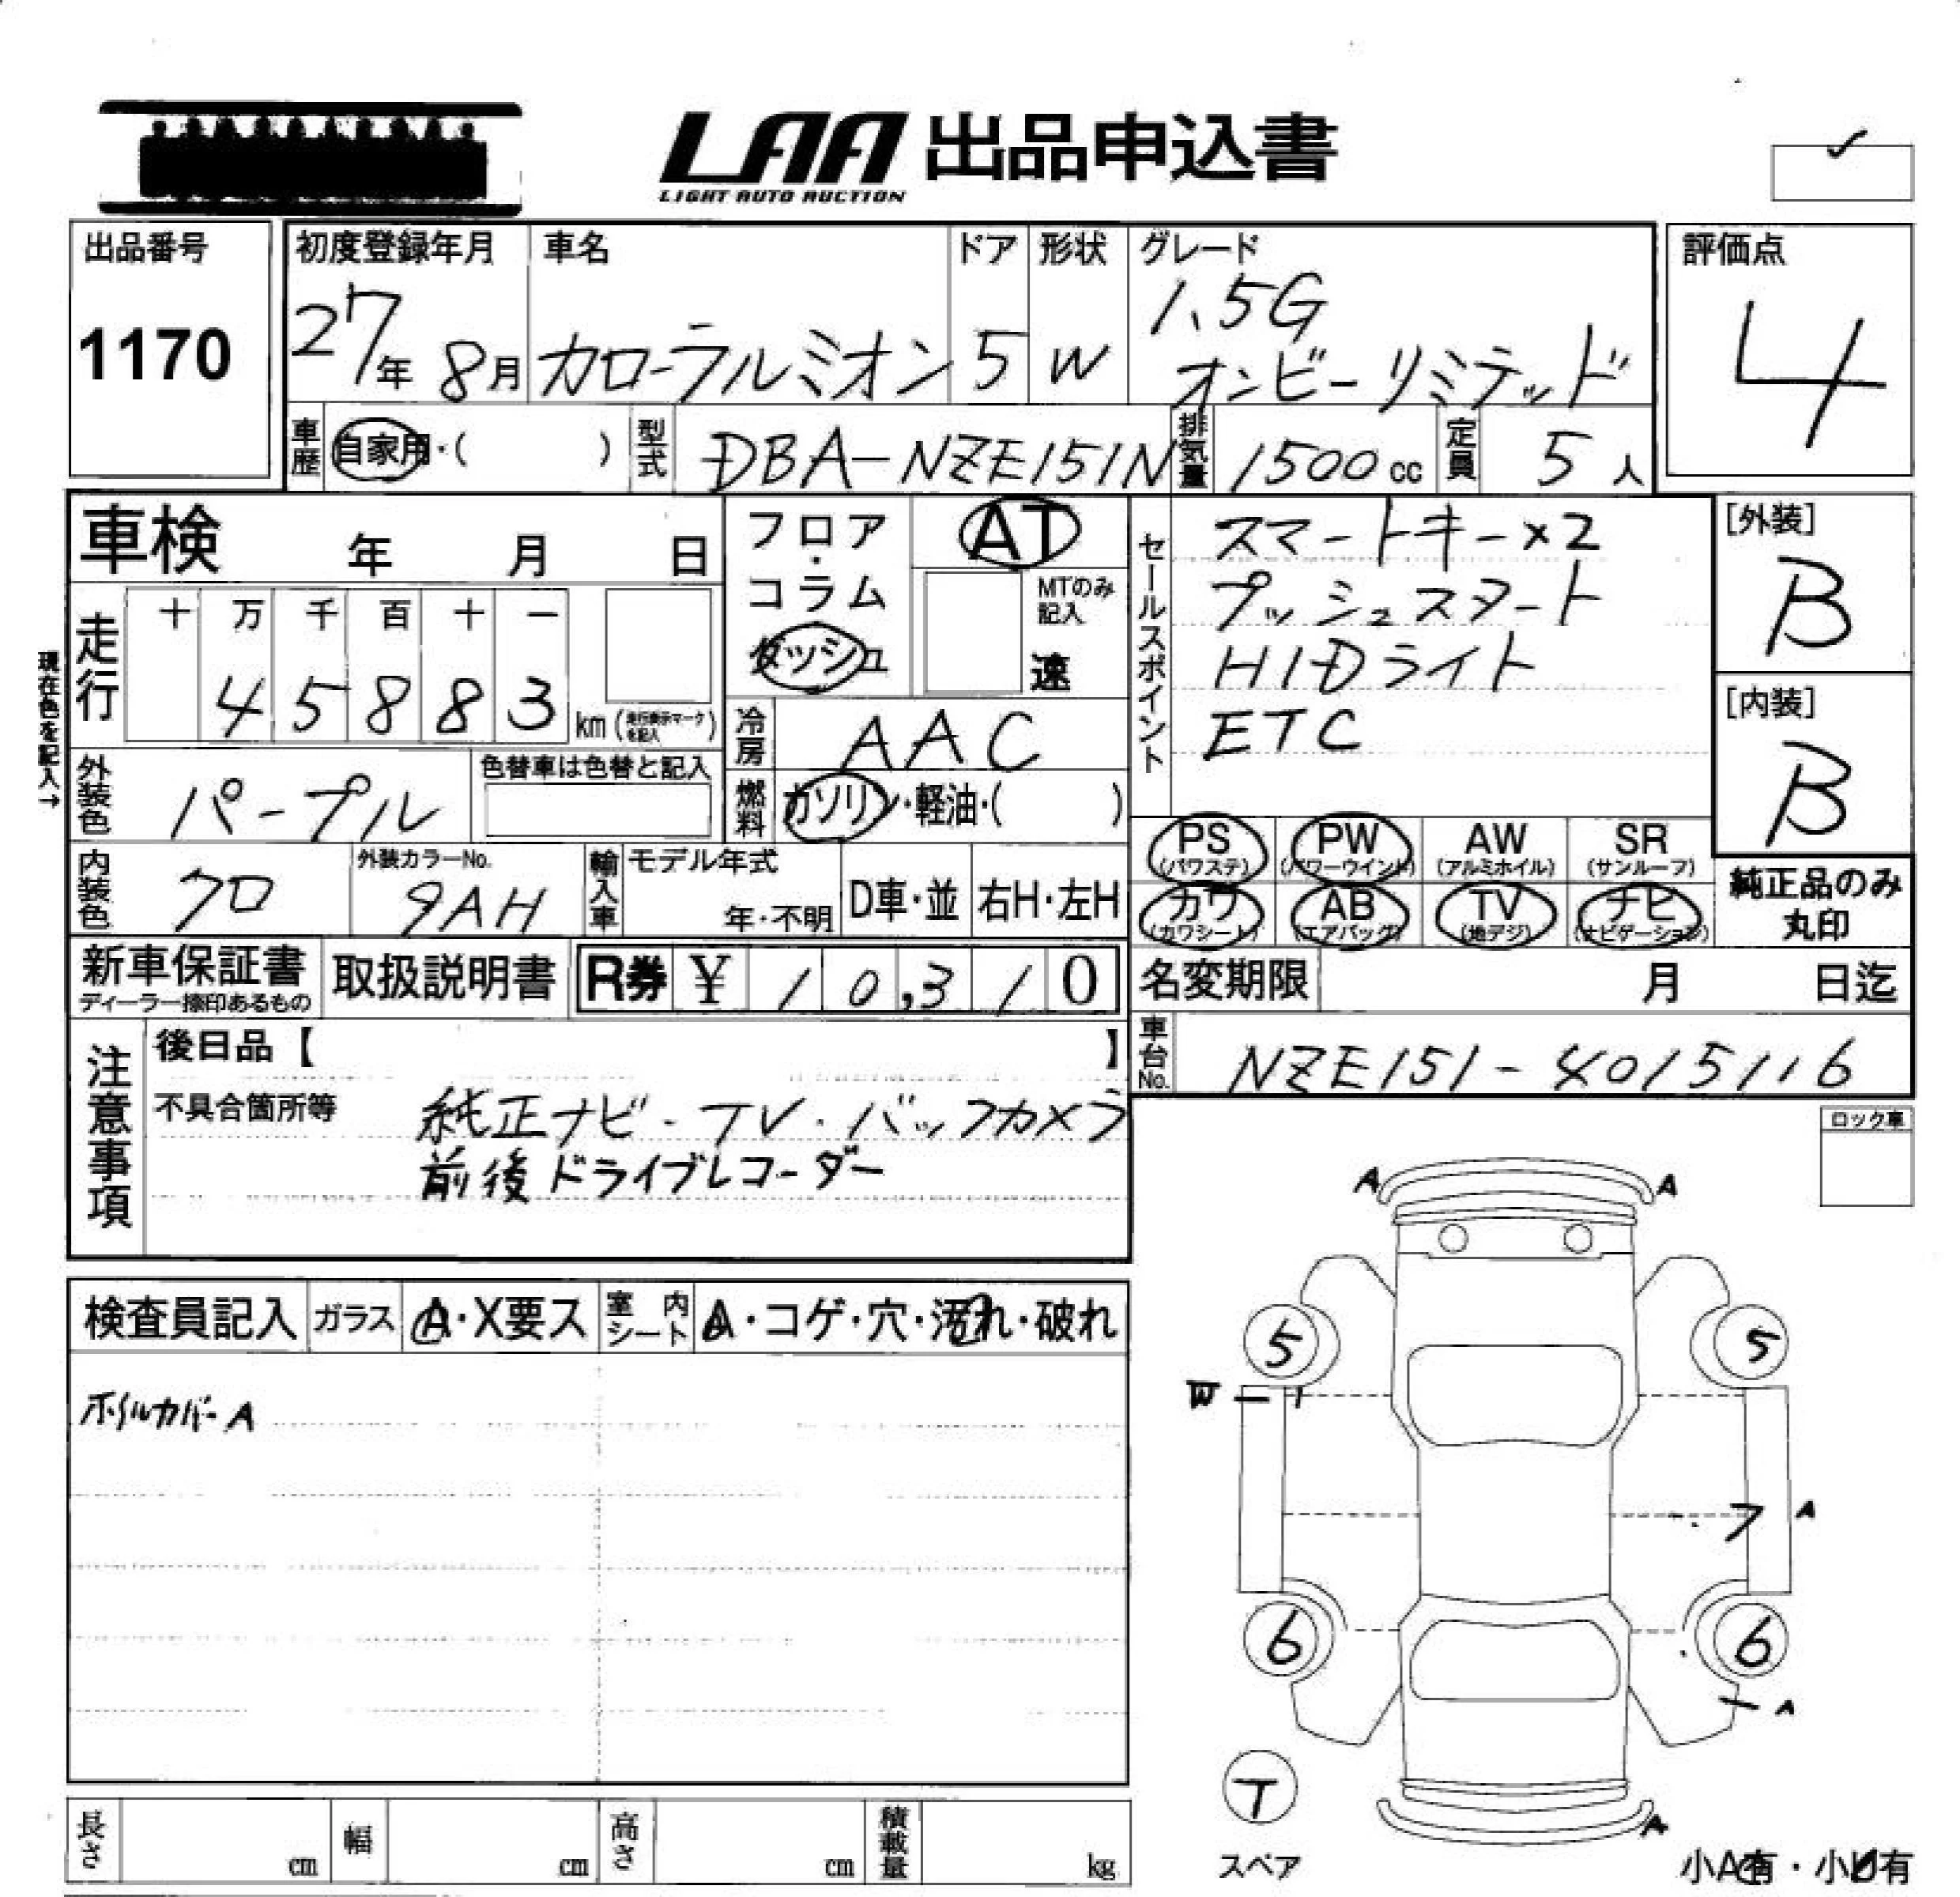 LAA 出品申込書
LIGHT AUTO AUCTION
出品番号
1170
初度登録年月
27年 8月
車名
カローラルミオン
ドア
5
形状
W
グレード
1.5G
オンビーリミテッド
評価点
4
車歴
自家用・( )
型式
DBA-NZE151N
排気量
1500 cc
定員
5 人
車検 年 月 日
走行
十 万 千 百 十 一
4 5 8 8 3
km (走行表示マークを記入)
現在色を記入→
外装色
パープル
色替車は色替と記入
内装色
クロ
外装カラーNo.
9AH
フロア・コラム
ダッシュ
AT
MTのみ記入
速
冷房
AAC
燃料
ガソリン・軽油・( )
輸入車
モデル年式
年・不明
D車・並
右H・左H
セールスポイント
スマートキー×2
プッシュスタート
HIDライト
ETC
[外装]
B
[内装]
B
PS (パワステ)
PW (パワーウインド)
AW (アルミホイル)
SR (サンルーフ)
カワ (カワシート)
AB (エアバッグ)
TV (地デジ)
ナビ (ナビゲーション)
純正品のみ
丸印
新車保証書
ディーラー捺印あるもの
取扱説明書
R券 ¥ 10,310
名変期限 月 日迄
車台No.
NZE151-4015116
注意事項
後日品【 】
不具合箇所等
純正ナビ・TV・バックカメラ
前後ドライブレコーダー
ロック車
検査員記入
ガラス
A・X要ス
室内シート
A・コゲ・穴・汚れ・破れ
ホイルカバーA
A A
5 5
W
ア A
6 6
A
T
スペア
A
小A有・小U有
長さ cm
幅 cm
高さ cm
積載量 kg